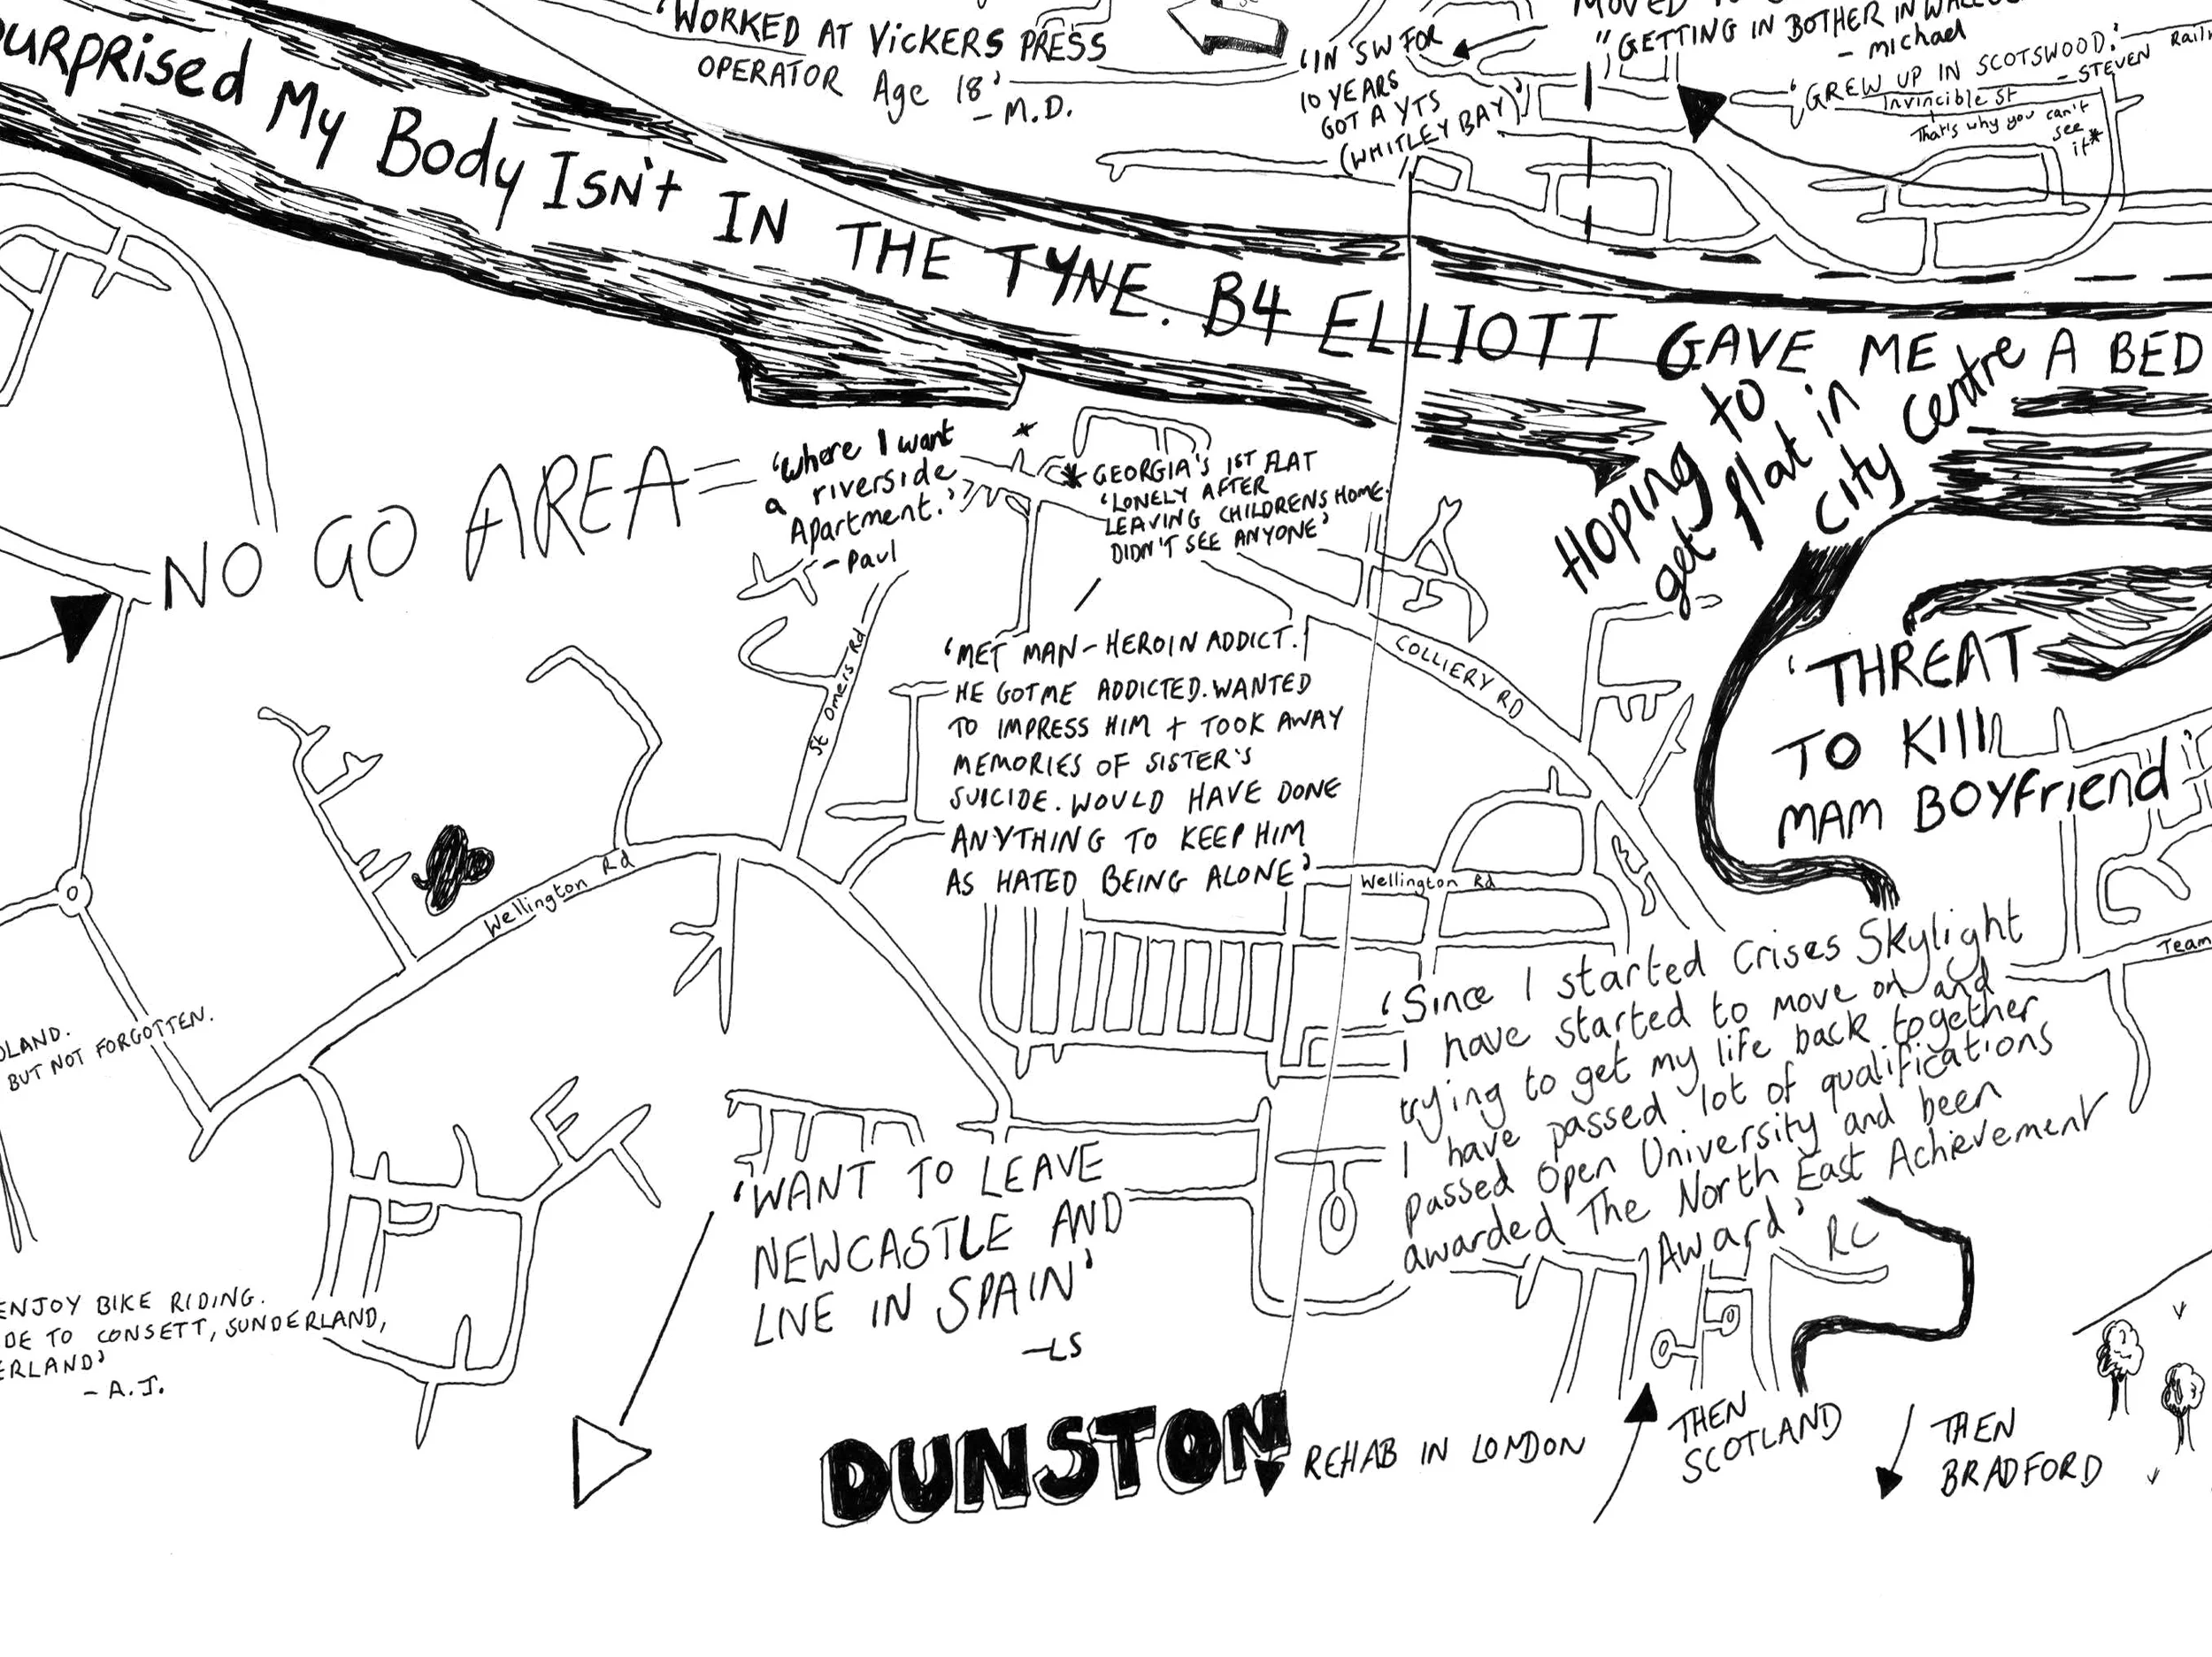 'WORKED AT VICKERS PRESS
OPERATOR Age 18'
- M.D.
'IN SW FOR
10 YEARS
GOT A YTS
(WHITLEY BAY)'
"GETTING IN BOTHER IN
- Michael
'GREW UP IN SCOTSWOOD.'
- STEVEN
Invincible St
That's why you can't
see
it*
My Body ISN't IN THE TYNE. B4 ELLIOTT GAVE ME A BED
Hoping to
get flat in
City Centre
NO GO AREA =
'where I want
a riverside
Apartment.'
- Paul
* GEORGIA'S 1ST FLAT
'LONELY AFTER
LEAVING CHILDRENS HOME.
DIDN'T SEE ANYONE'
'MET MAN - HEROIN ADDICT.
HE GOT ME ADDICTED. WANTED
TO IMPRESS HIM + TOOK AWAY
MEMORIES OF SISTER'S
SUICIDE. WOULD HAVE DONE
ANYTHING TO KEEP HIM
AS HATED BEING ALONE'
St Omers Rd
COLLIERY RD
'THREAT
TO KIll
MAM BOYFriend'
Wellington Rd
Wellington Rd
Team
'Since I started Crises Skylight
I have started to move on and
trying to get my life back together
I have passed lot of qualifications
passed Open University and been
awarded The North East Achievement
Award'
RC
BUT NOT FORGOTTEN.
'WANT TO LEAVE
NEWCASTLE AND
LIVE IN SPAIN'
- LS
ENJOY BIKE RIDING.
TO CONSETT, SUNDERLAND,
- A.J.
DUNSTON
REHAB IN LONDON
THEN
SCOTLAND
THEN
BRADFORD